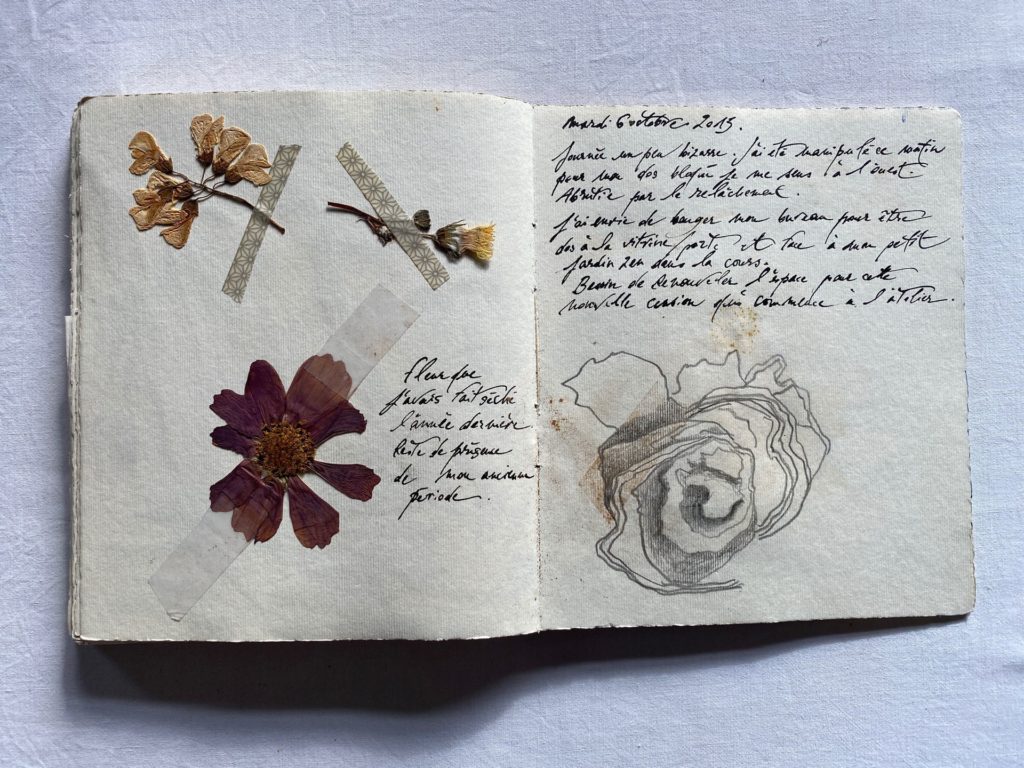 fleur que
j'avais fait séché
l'année dernière
Reste de
de mon ancienne
periode.
mardi 6 octobre 2015.
Journée un peu bizarre. j'ai été manipulé ce matin
pour mon dos bloqué je me sens à l'ouest.
Abrutie par le relâchement.
j'ai envie de bouger mon bureau pour être
dos à la vitrine porte et face à mon petit
jardin zen dans la cours.
Besoin de Renouveler l'espace pour cette
nouvelle cession qui commence à l'atelier.